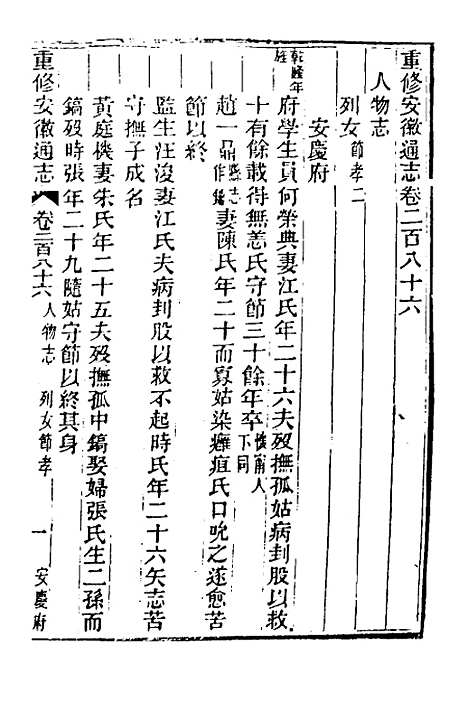 重修安徽通志卷二百八十六
人物志
列女節孝二
安慶府
乾隆年旌 府學生員何榮典妻江氏年二十六夫歿撫孤姑病刲股以救
十有餘載得無恙氏守節三十餘年卒 懷甯人下同
趙一鼎 妻陳氏年二十而寡姑染癰疽氏口吮之遂愈苦
節以終
監生汪沒妻江氏夫病刲股以救不起時氏年二十六矢志苦
守撫子成名
黃庭機妻朱氏年二十五夫歿撫孤中鎬娶婦張氏生二孫而
鎬歿時張年二十九隨姑守節以終其身
重修安徽通志 卷二百八十六 人物志 列女節孝 一 安慶府